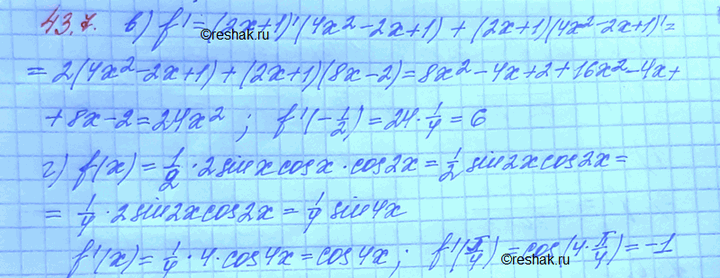 43.7. в) f' = (2x+1)'(4x²-2x+1) + (2x+1)(4x²-2x+1)' =
©reshak.ru
= 2(4x²-2x+1) + (2x+1)(8x-2) = 8x²-4x+2+16x²-4x+
+8x-2 = 24x² ; f'(-1/2) = 24·1/4 = 6
г) f(x) = 1/2 · 2sinxcosx · cos2x = 1/2 sin2xcos2x =
= 1/4 · 2sin2xcos2x = 1/4 sin4x
f'(x) = 1/4 · 4 · cos4x = cos4x ; f'(π/4) = cos(4·π/4) = -1
©reshak.ru